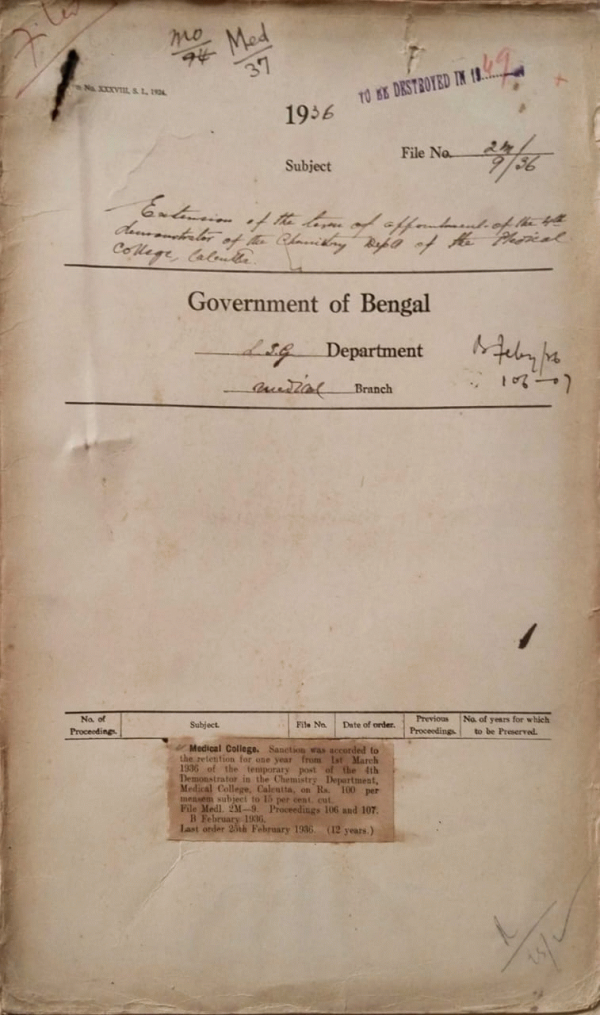 Filed
Med
37
No. XXXVIII, S. I., 1934.
TO BE DESTROYED IN 1949
1936
File No. 2M/9/36
Subject
Extension of the term of appointment of the 4th
demonstrator of the Chemistry Dept of the Medical
College, Calcutta.
Government of Bengal
L.S.G Department
Medical Branch
B Feby/36
106-07
No. of Proceedings. Subject. File No. Date of order. Previous Proceedings. No. of years for which to be Preserved.
Medical College. Sanction was accorded to
the retention for one year from 1st March
1936 of the temporary post of the 4th
Demonstrator in the Chemistry Department,
Medical College, Calcutta, on Rs. 100 per
mensem subject to 15 per cent. cut.
File Medl. 2M—9. Proceedings 106 and 107.
B February 1936.
Last order 25th February 1936. (12 years.)